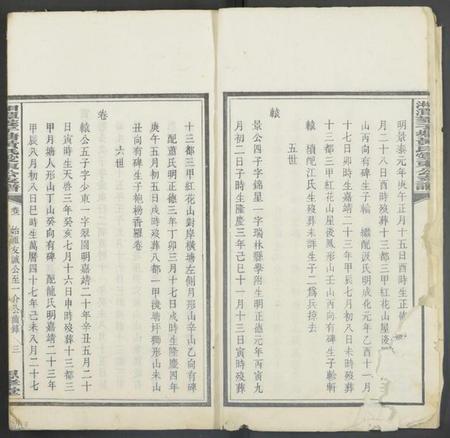 明景泰元年庚午正月十五日酉時生正德
月二十八日酉時歿葬十三都三甲紅花山後
山丙向有碑生子輪 繼配
氏明成化元年乙酉十一月
十七日卯時生嘉靖二十三年甲辰七月初八日未時歿葬
十三都三甲紅花山屋後鳳形山壬山丙向有碑生子軫斬
轅 續配江氏生歿葬未詳生子二爲兵掠去
五世
轅
景公四子字錦星一字瑞林縣學附生明正德元年丙寅九
月初二日子時生隆慶三年己巳十一月十三日寅時歿葬
十三都三甲紅花山對岸橫塘左側月形山辛山乙向有碑
配蕭氏明正德三年丁卯三月十七日戌時生隆慶四年
庚午五月初五日戌時歿葬八都一甲後塘坪獅形山未山
丑向有碑生子
卷
六世
卷
轅公五子字少東一字翠園明嘉靖二十年辛丑五月二十
日寅時生天啓三年癸亥七月十六日申時歿葬十三都三
甲月塘人形山丁山癸向有碑 配龍氏明嘉靖二十三年
甲辰八月初八日巳時生萬曆四十七年己未八月二十七
始遷友誠公至一介公齒錄 三